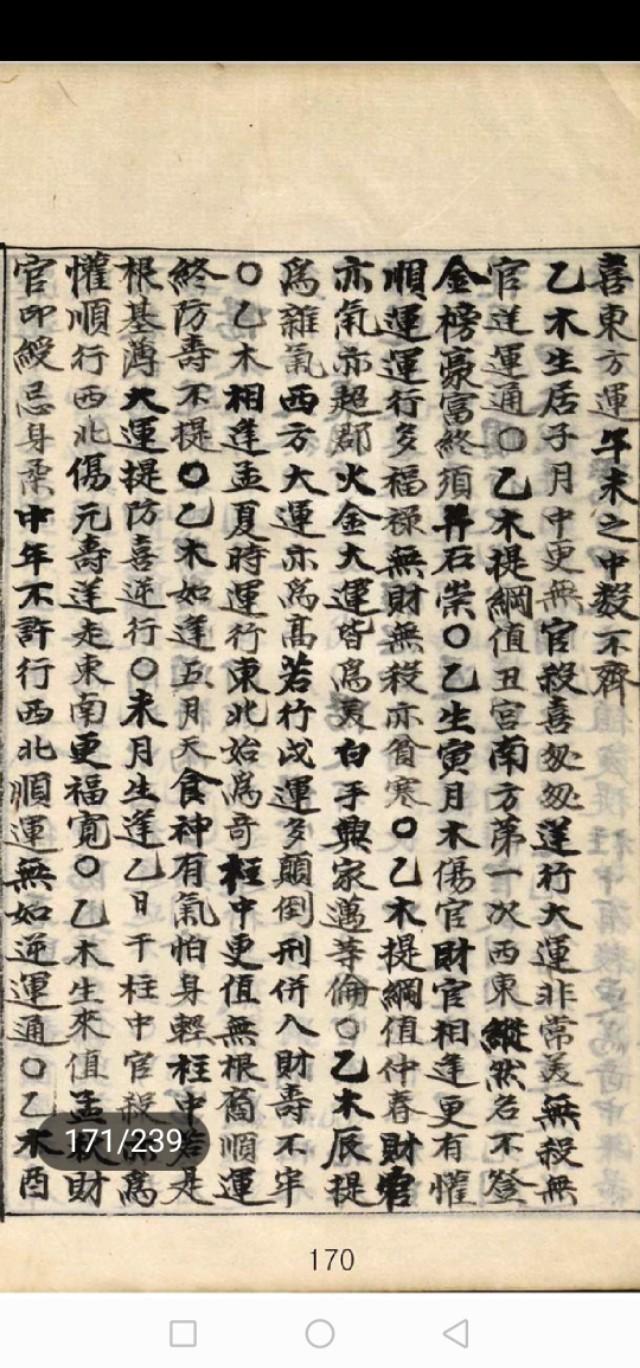 喜東方運午未之中数不齊
乙木生居子月中更無官殺喜匆匆逆行大運非常美無殺無
官逆運通〇乙木提綱值丑宮南方苐一次西東縱然名不登
金榜豪富終須並石崇〇乙生寅月木傷官財官相逢更有懽
順運運行多福禄無財無殺亦貧寒〇乙木提綱值仲春財官
亦氣亦超郡火金大運皆爲美白手興家邁等倫〇乙木辰提
爲雜氣西方大運亦爲髙若行戌運多顛倒刑併入財壽不牢
〇乙木相逢孟夏時運行東北始爲竒柱中更值無根裔順運
終防壽不提〇乙木如逢五月天食神有氣怕身輕柱中若是
根基薄大運提防喜逆行〇未月生逢乙日干柱中官殺爲
懽順行西北傷元壽逆走東南更福寬〇乙木生來值孟秋財
官印綬忌身柔中年不許行西北順運無如逆運通〇乙木酉
171/239
170